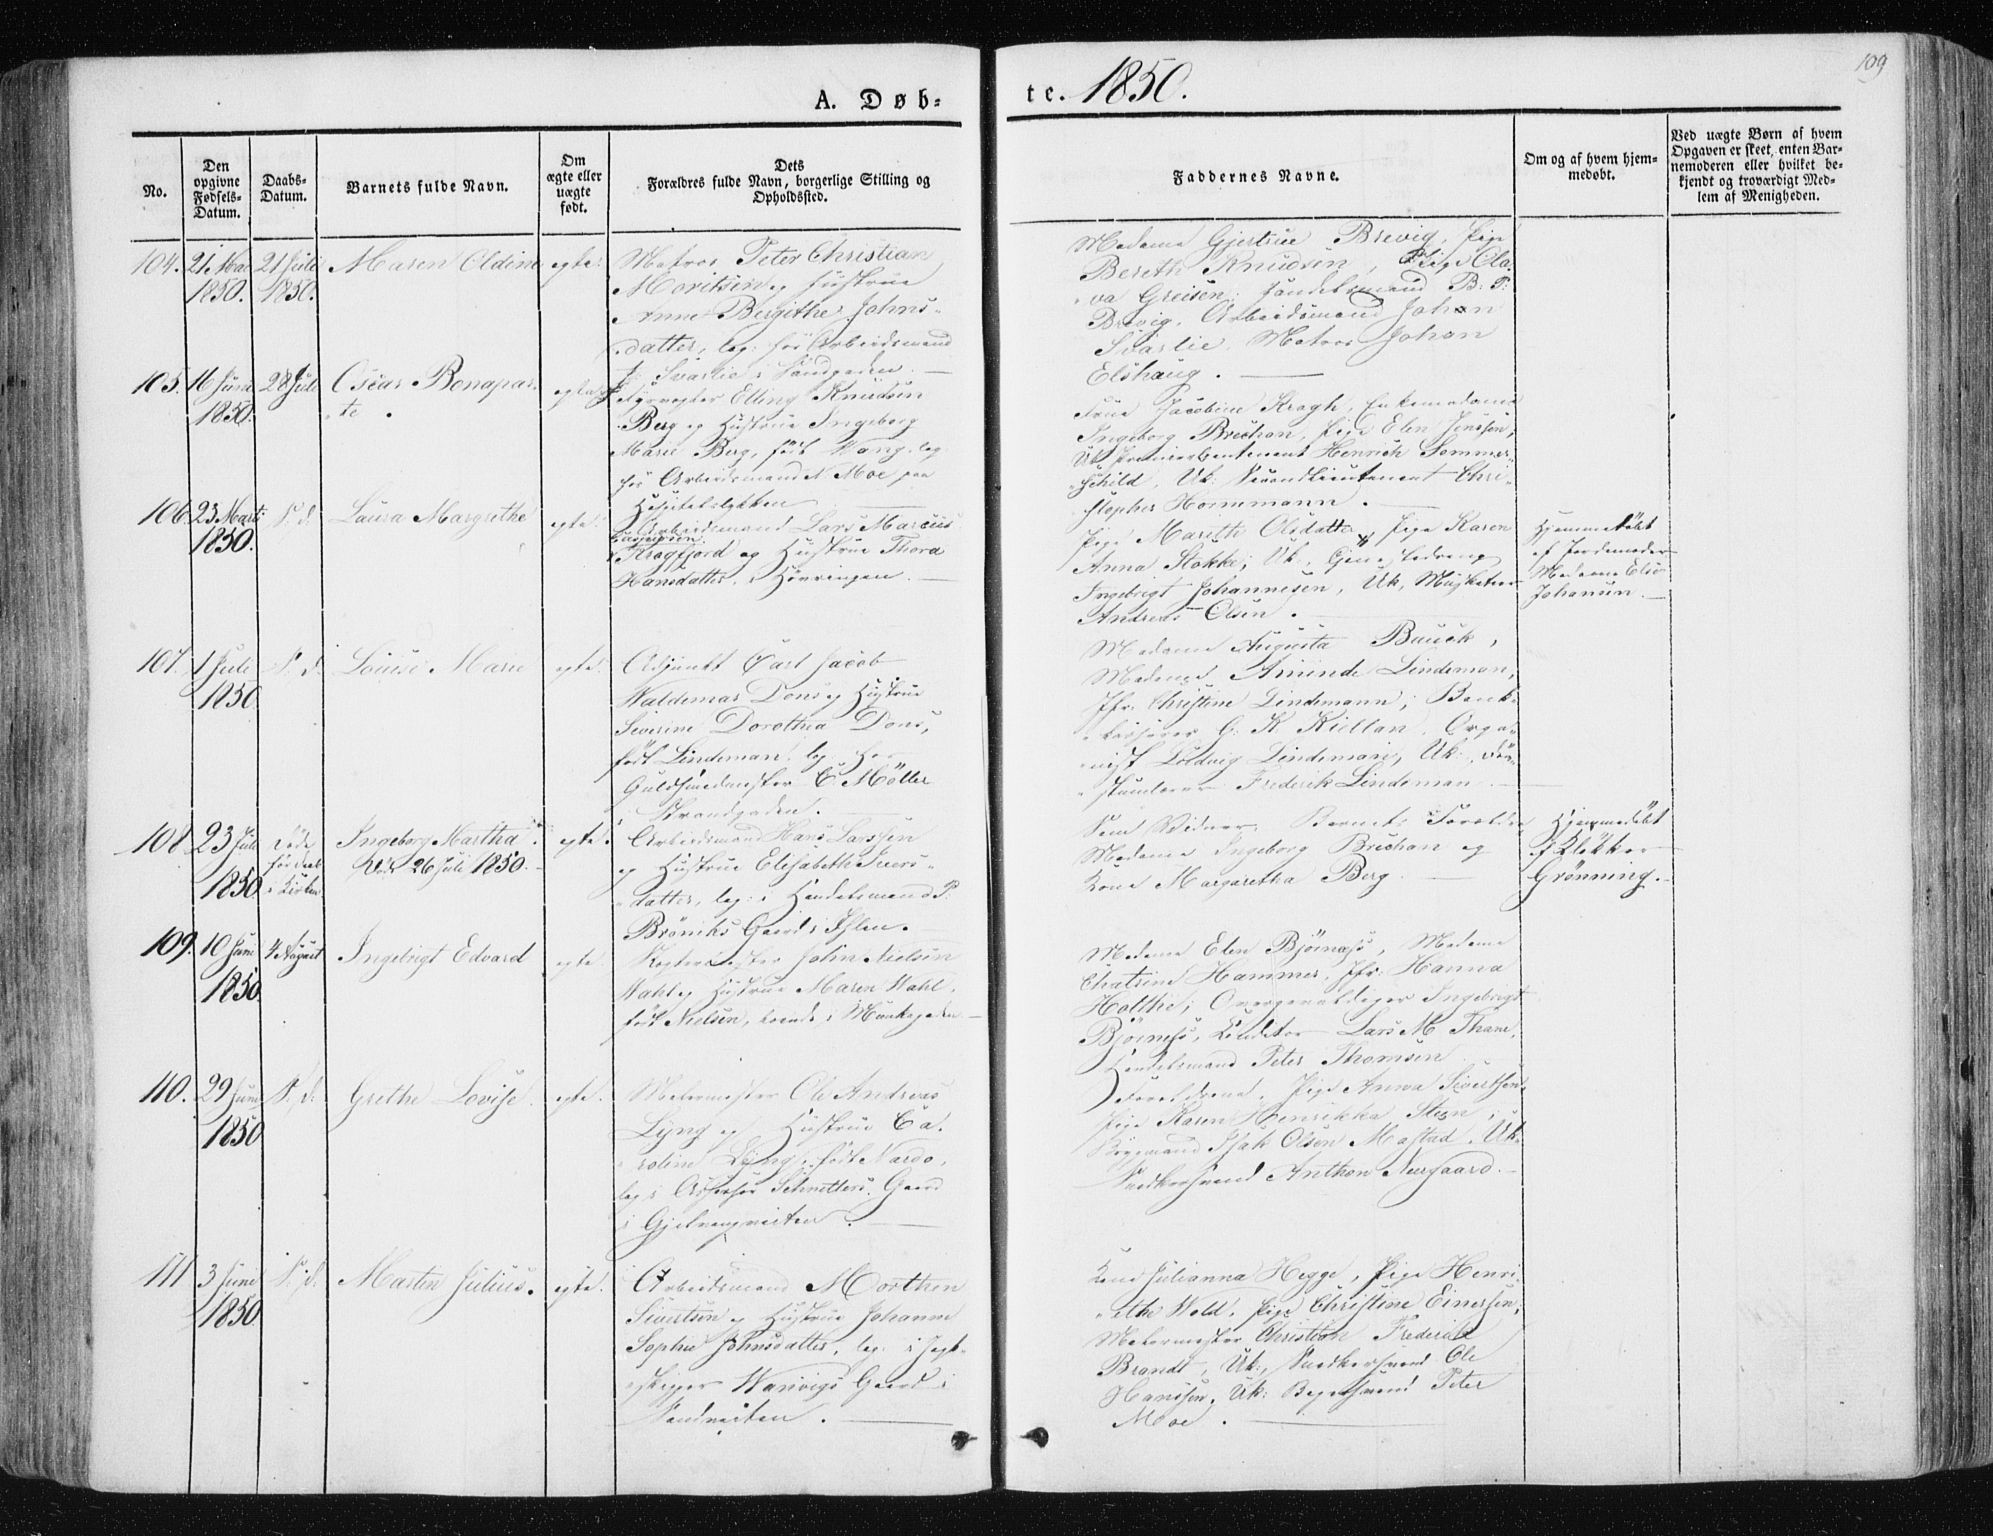 109
A. Døb-
te. 1850.
No.
Den
opgivne
Fødsels-
Datum.
Daabs-
Datum.
Barnets fulde Navn.
Om
ægte eller
uægte
født.
Dets
Forældres fulde Navn, borgerlige Stilling og
Opholdssted.
Faddernes Navne.
Om og af hvem hjem-
medøbt.
Ved uægte Børn af hvem
Opgaven er skeet, enten Bar-
nemoderen eller hvilket be-
kjendt og troværdigt Med-
lem af Menigheden.
104.
21 Mai
1850.
21 Juli
1850.
Maren Oldine
egte.
Matros Peter Christian
Moritsen og Hustrue
Anne Bergithe Johns-
datter, log: hos Arbeidsmand
J. Svarlie i Sandgaden.
Madame Gjertrue Brevig, Pige
Bereth Knudsen, Pige Ola-
va Greisen, Handelsmand B: P:
Brevig, Arbeidsmand Johan
Svarlie, Matros Johan
Elshaug.
105.
16 Juni
1850.
28 Juli
Oscar Bonapar-
te.
egte
Elling Knudsen
Berg og Hustrue Ingeborg
Marie Berg, født Wang, log
hos Arbeidsmand Moe paa
Hospitalsløkken
Frue Jacobine Kragh, Enkemadame
Ingeborg Brechan, Pige Elen Jenssen,
Uk. Premierlieutenant Henrich Sommer-
schild, Uk: Secondlieutenant Chri-
stopher Hornemann.
106.
23 Marts
1850.
S. d.
Laura Margrethe
egte.
Arbeidsmand Lars Marcus
Kragfjord og Hustrue Thora
Hansdatter, i Hævringen.
Pige Mareth Olsdatter, Pige Karen
Anna Stokke, Uk.
Ingebrigt Johannesen, Uk, Musketeer
Andreas Olsen.
Hjemmedøbt
af Jordemoder
Madame Else
Johansen.
107.
1 Juli
1850
S. d.
Louise Marie
egte.
Adjunkt Carl Jacob
Waldemar Dons og Hustrue
Severine Dorothea Dons,
født Lindeman, log hos
Guldsmedmester C Möller
Strandgaden.
Madame Augusta Buuck,
Madame Aminde Lindeman,
Jfr. Christine Lindemann, Bank-
kasserer G. K. Kiellan, Orga-
nist Ludvig Lindeman, Uk.
Frederik Lindeman
108
23 Juli
1850.
Døde
før Daab
i Kirken
Ingeborg Martha.
Død 26 Juli 1850.
egte.
Arbeidsmand Hans Larssen
og Hustrue Elisabeth Ivers-
datter, log: i Handelsmand P.
Brönichs Gaard i Ihlen.
Som Vidner: Barnets Forældre
Madame Ingeborg Brechan og
Kone Margaretha Berg.
Hjemmedöbt
af Klokker
Grönning.
109.
10 Juni
1850
4 August
Ingebrigt Edvard
egte.
John Nielsen
Wahl og Hustrue Maren Wahl,
født Nielsen, boende i Munkegaden
Madame Elen Bjørnaas, Madame
Chatrine Hammer, Jfr. Hanna
Holthe, Ingebrigt
Bjørnaas, Konditor Lars M Thane,
Handelsmand Peter Thomsen
110.
29 Juni
1850
S. d.
Grethe Lovise
egte.
Malermester Ole Andreas
Lyng og Hustrue Ca-
roline Lyng, født Nardo,
log i Assessor Schnitlers Gaard
i Gjelvangveiten.
Forældrene, Pige Anna Sivertsen
Pige Karen Henrikka Steen,
Isak Olsen Mastad, Uk.
Snedkersvend Anthon Neergaard.
111
3 Juni
1850
S. d.
Martin Julius.
egte.
Arbeidsmand Morthen
Sivertsen og Hustrue Johanne
Sophie Johnsdatter, log: i Jagt-
skipper Warvigs Gaard i
Sandveiten.
Kone Julianna Hegge, Pige Henri-
ethe Wold, Pige Christine Einersen,
Malermester Christian Frederik
Brandt, Uk., Snedkersvend Ole
Hanssen, Uk: Bagersvend Peter
Moe.